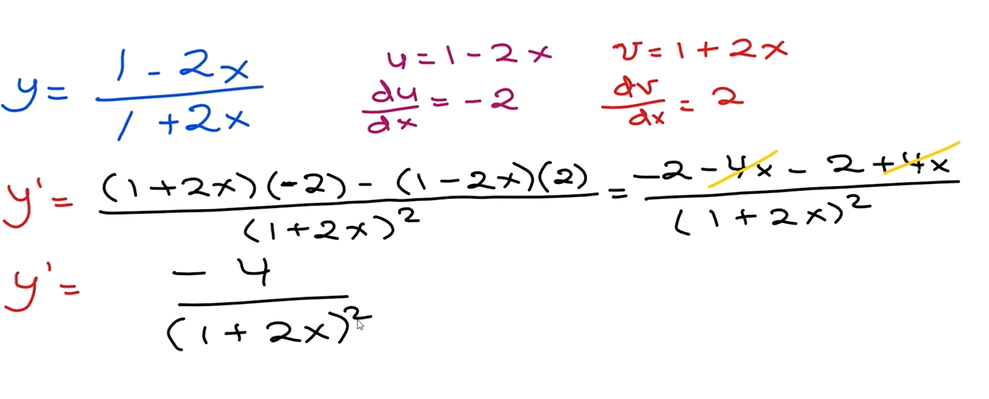 y = (1 - 2x)/(1 + 2x)    u = 1 - 2x    v = 1 + 2x
du/dx = -2    dv/dx = 2
y' = ((1+2x)(-2) - (1-2x)(2))/(1+2x)² = (-2 - 4x - 2 + 4x)/(1+2x)²
y' = -4/(1+2x)²